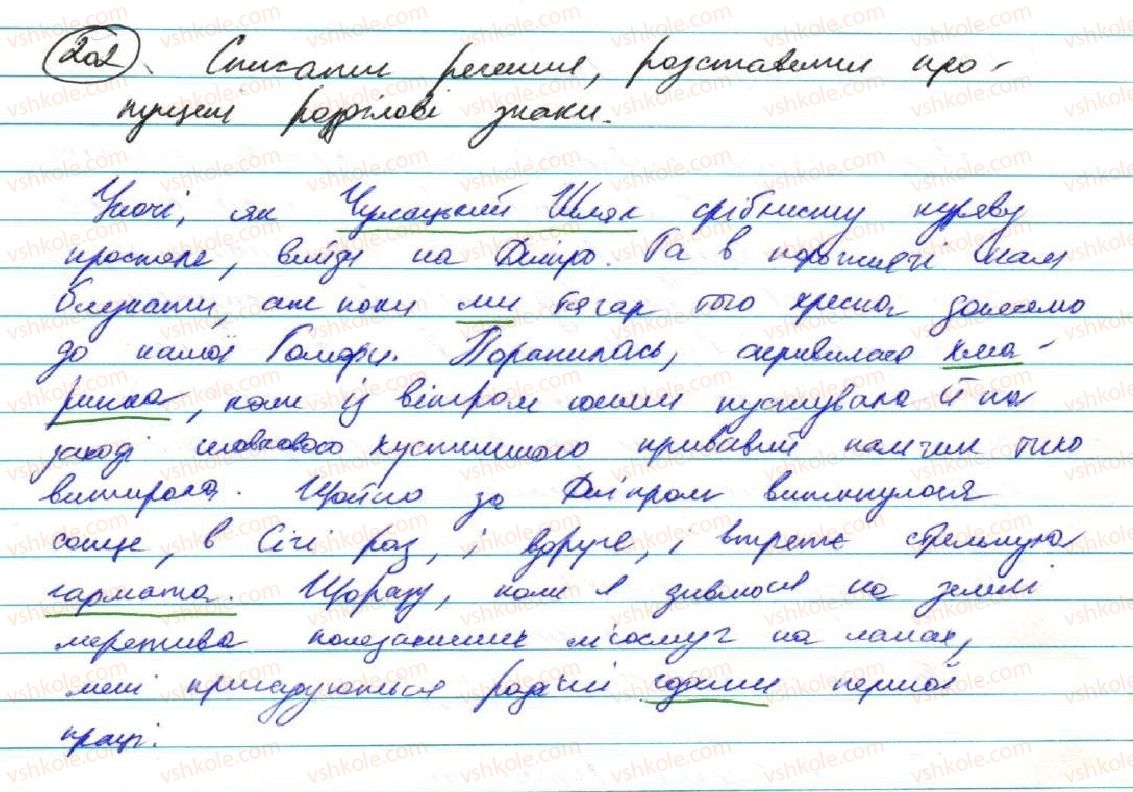 202. Списати речення, розставивши про-
пущені розділові знаки.
Уночі, як Чумацький Шлях сріблисту куряву
простеле, вийди на Дніпро. Та в порожнечі нам
блукати, аж поки ми тягар того хреста донесемо
до нашої Голгофи. Поранилась, скривилася хма-
ринка, коли із вітром юним пустувала й на
заході шовкового хустиною кривавий пальчик тихо
витирала. Щойно за Дніпром викинулося
сонце, в Січі раз, і вдруге, і втретє стрельнула
гармата. Щоразу, коли я дивлюся на земні
мережива полезахисних лісосмуг на ланах,
мені пригадуються радісні години першої
праці.